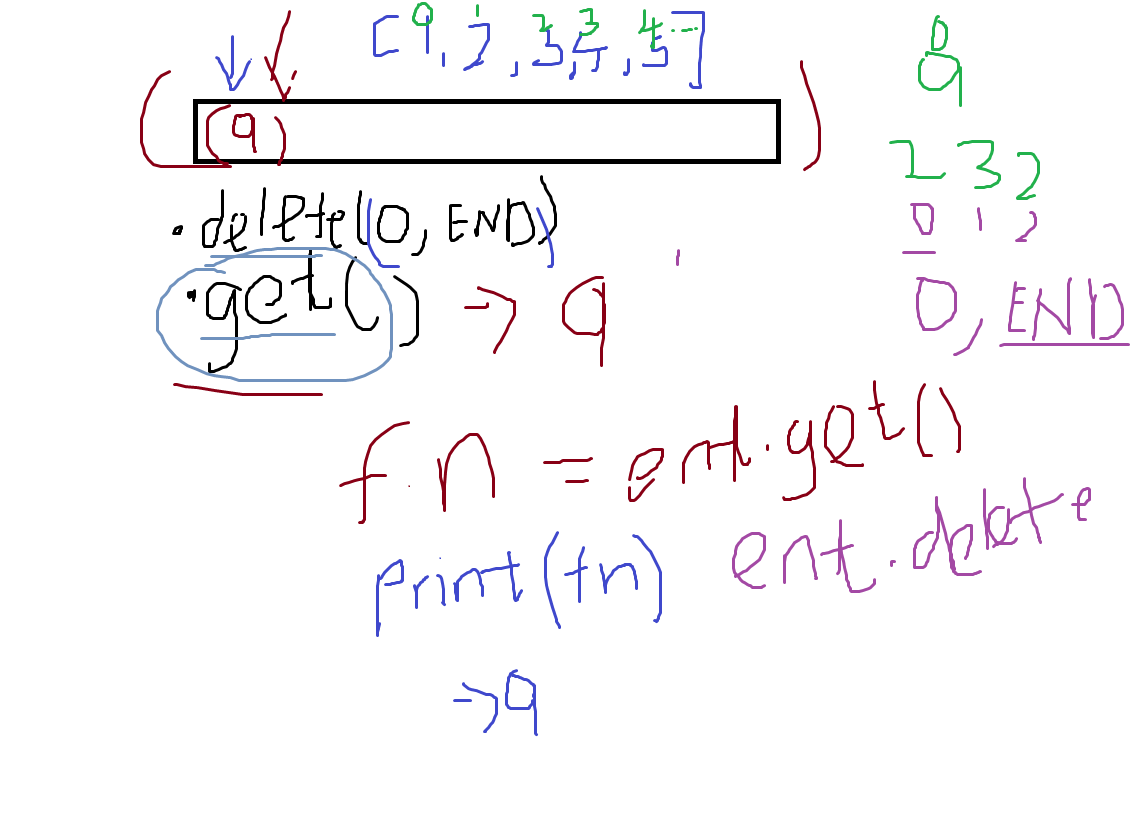 [9, 2, 3, 4, 5]
(9)
.delete(0, END)
.get() -> 9
0
9
2 3 2
0 1 2
0, END
fn = ent.get()
print(fn)
ent.delete
->9